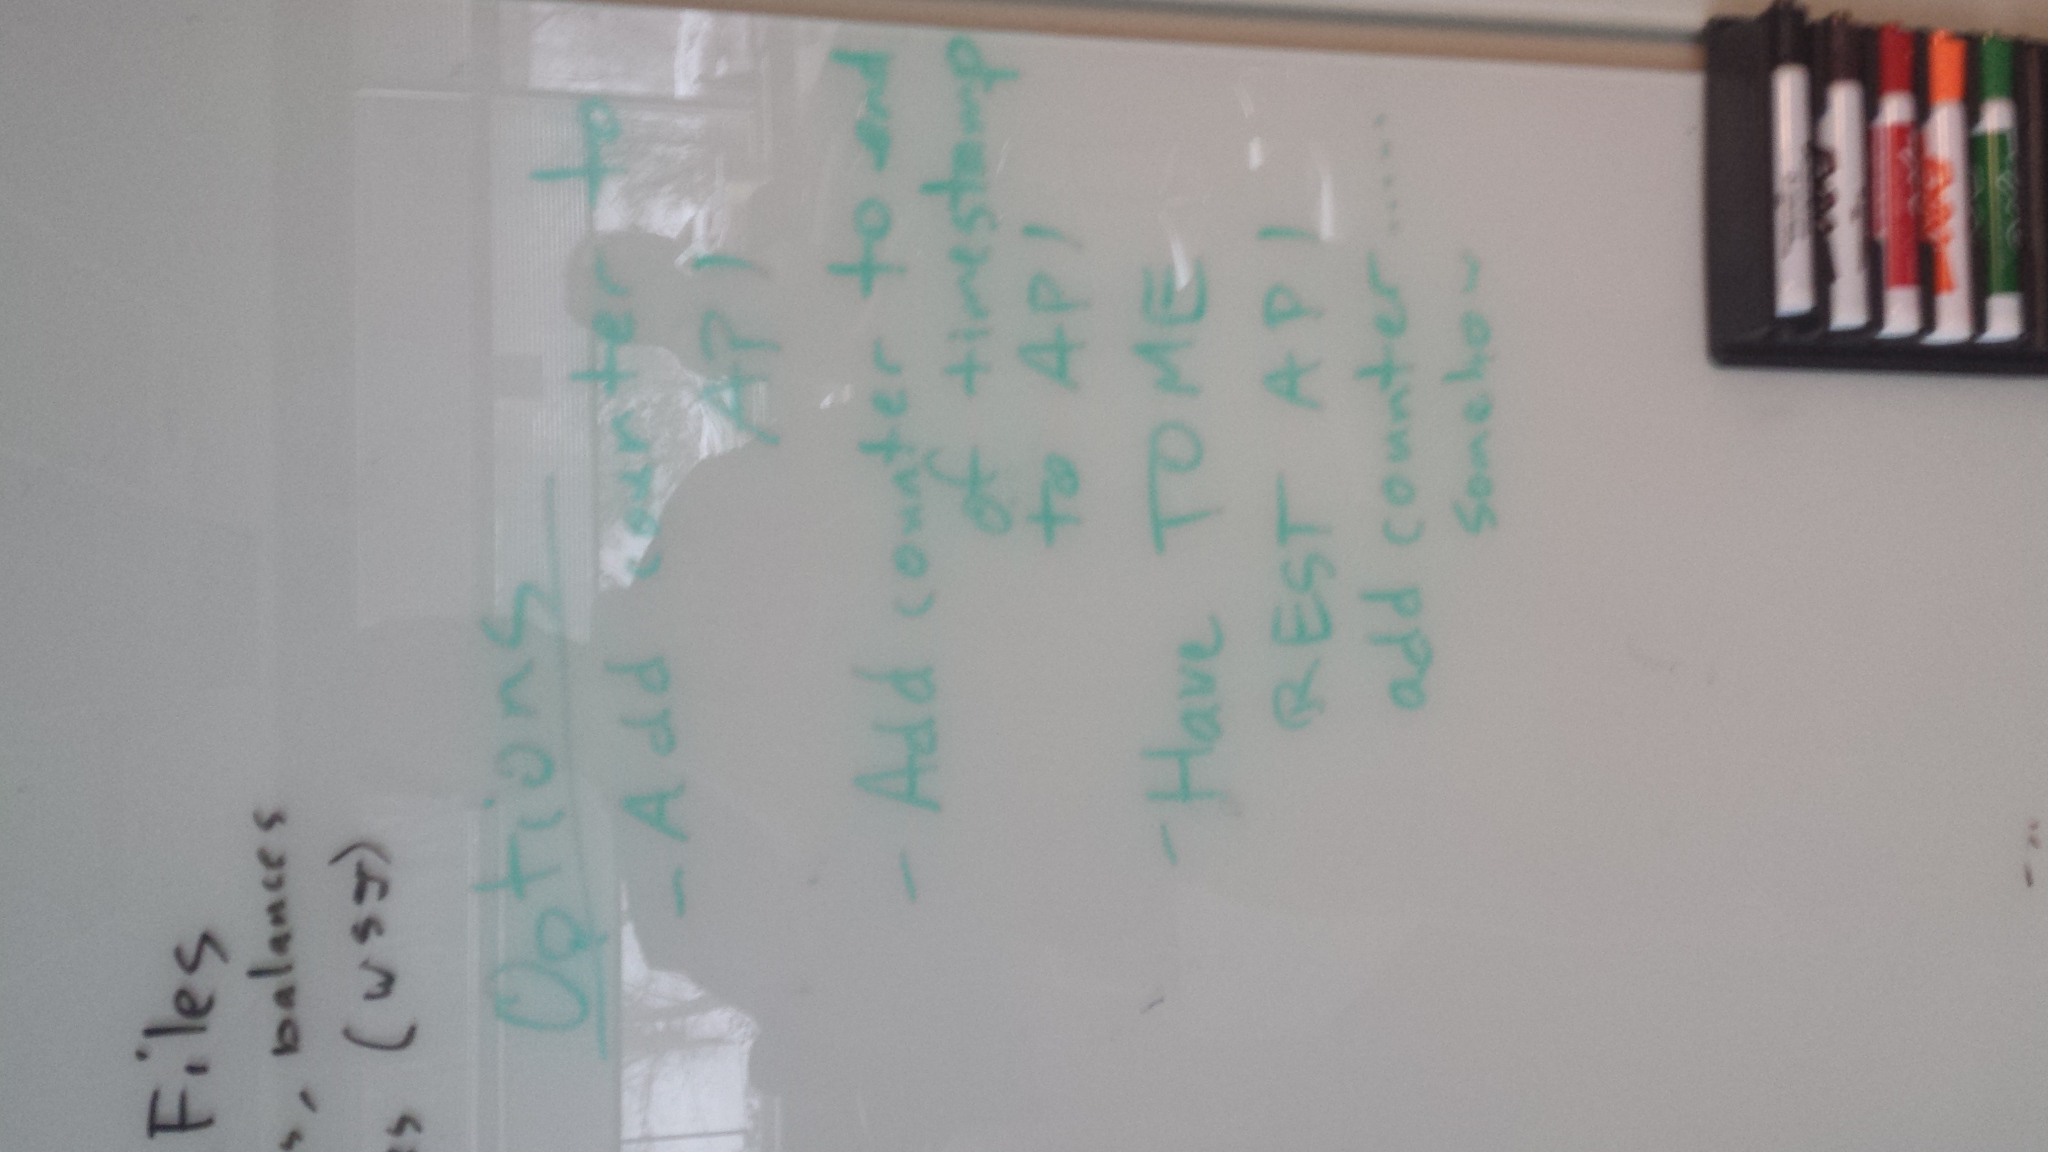 Files
s, balances
es (WSJ)
Options
- Add counter to
API
- Add counter to end
of timestamp
to API
- Have TOME
REST API
add counter.....
somehow